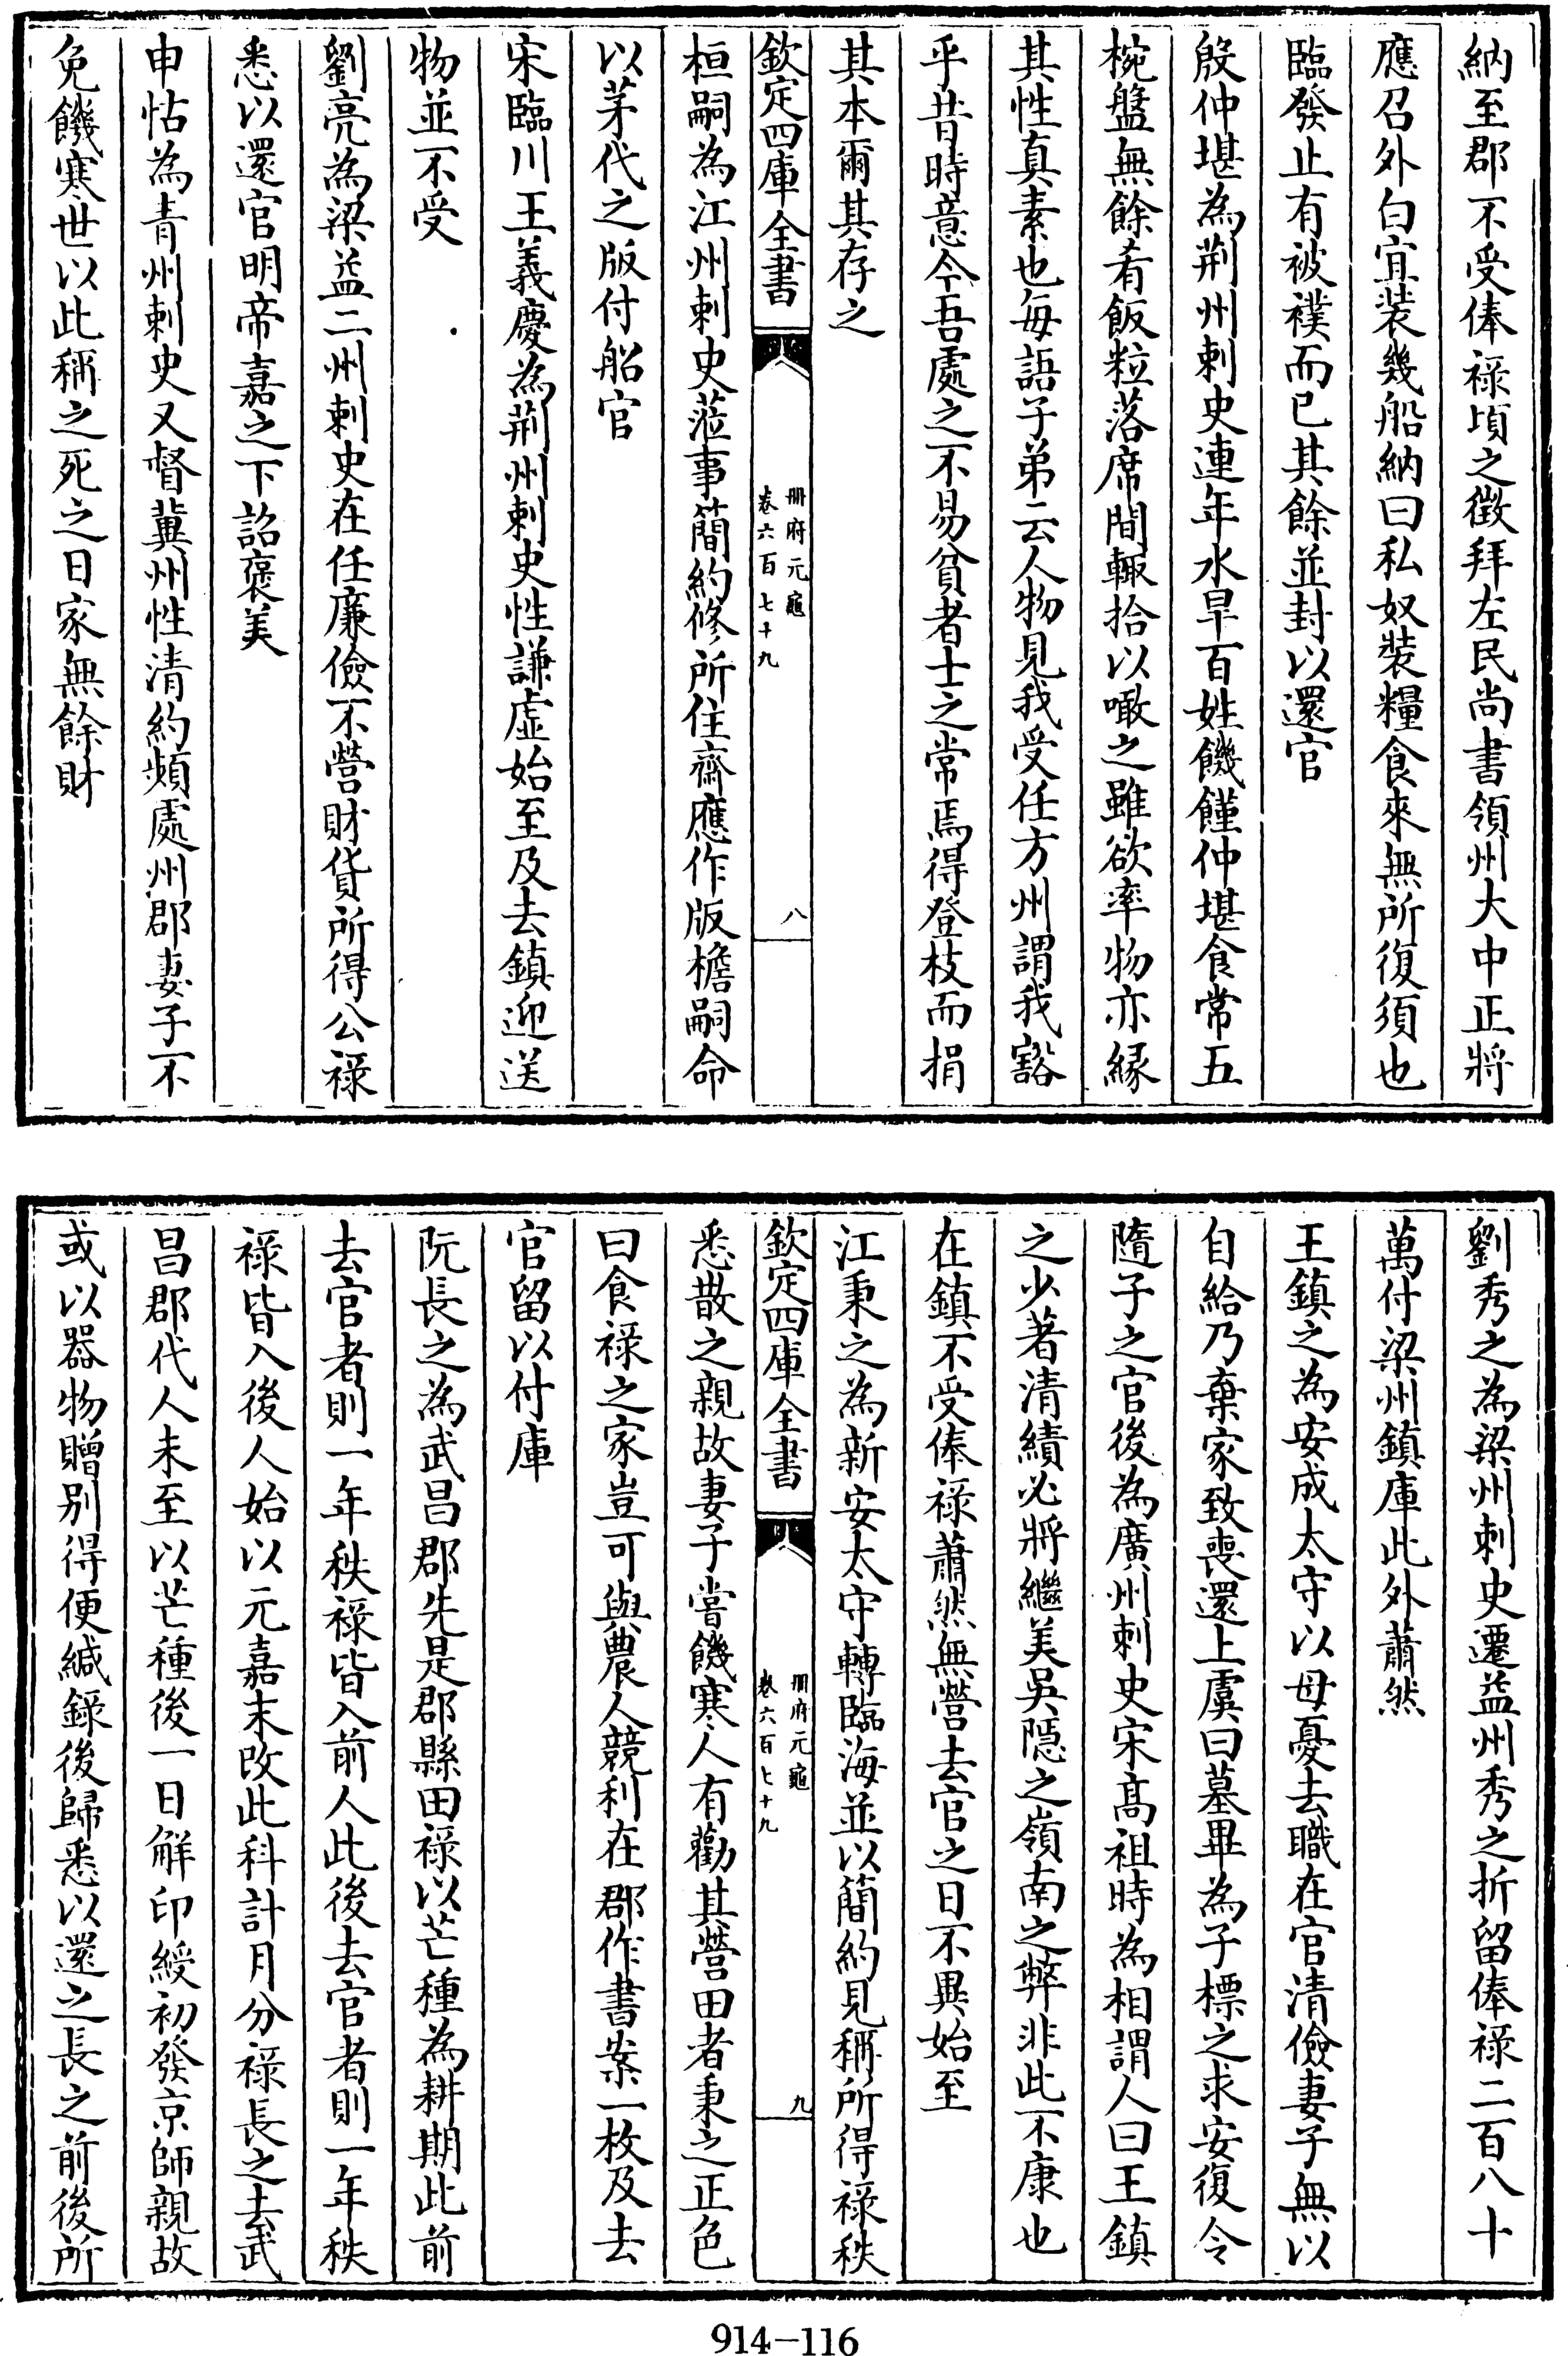 納至郡不受俸禄頃之徵拜左民尚書領州大中正將
應召外白宜装幾船納曰私奴裝糧食來無所復須也
臨發止有被襆而已其餘並封以還官
殷仲堪為荆州刺史連年水旱百姓饑饉仲堪食常五
椀盤無餘肴飯粒落席間輙拾以噉之雖欲率物亦縁
其性真素也每語子弟云人物見我受任方州謂我豁
乎昔時意今吾處之不易貧者士之常焉得登枝而捐
其本爾其存之
欽定四庫全書
冊府元龜
卷六百七十九
八
桓嗣為江州刺史蒞事簡約修所住齋應作版檐嗣命
以茅代之版付船官
宋臨川王義慶為荆州刺史性謙虚始至及去鎮迎送
物並不受
劉亮為梁益二州刺史在任廉儉不營財貨所得公禄
悉以還官明帝嘉之下詔褒美
申恬為青州刺史又督冀州性清約頻處州郡妻子不
免饑寒世以此稱之死之日家無餘財
劉秀之為梁州刺史遷益州秀之折留俸禄二百八十
萬付梁州鎮庫此外蕭然
王鎮之為安成太守以母憂去職在官清儉妻子無以
自給乃棄家致喪還上虞曰墓畢為子標之求安復令
隨子之官後為廣州刺史宋髙祖時為相謂人曰王鎮
之少著清績必將繼美吳隠之嶺南之弊非此不康也
在鎮不受俸禄蕭然無營去官之日不異始至
江秉之為新安太守轉臨海並以簡約見稱所得禄秩
欽定四庫全書
冊府元龜
卷六百七十九
九
悉散之親故妻子嘗饑寒人有勸其營田者秉之正色
曰食禄之家豈可與農人競利在郡作書案一枚及去
官留以付庫
阮長之為武昌郡先是郡縣田禄以芒種為耕期此前
去官者則一年秩禄皆入前人此後去官者則一年秩
禄皆入後人始以元嘉末改此科計月分禄長之去武
昌郡代人未至以芒種後一日解印綬初發京師親故
或以器物贈别得便緘錄後歸悉以還之長之前後所
914-116